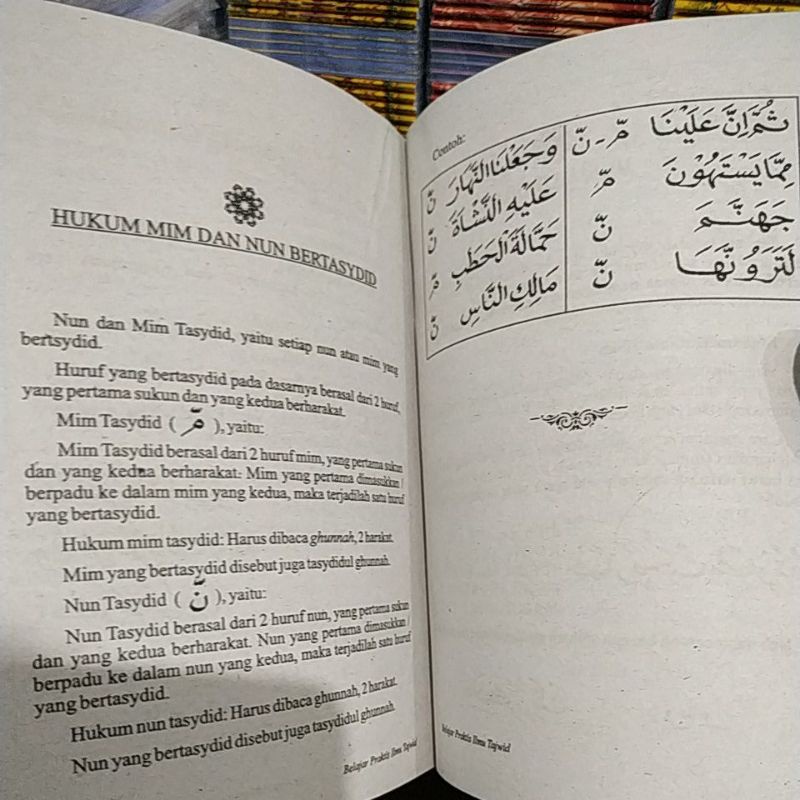 HUKUM MIM DAN NUN BERTASYDID
Nun dan Mim Tasydid, yaitu setiap nun atau mim yang
bertsydid.
Huruf yang bertasydid pada dasarnya berasal dari 2 huruf,
yang pertama sukun dan yang kedua berharakat.
Mim Tasydid ( مّ ), yaitu:
Mim Tasydid berasal dari 2 huruf mim, yang pertama sukun
dan yang kedua berharakat. Mim yang pertama dimasukkan /
berpadu ke dalam mim yang kedua, maka terjadilah satu huruf
yang bertasydid.
Hukum mim tasydid: Harus dibaca ghunnah, 2 harakat.
Mim yang bertasydid disebut juga tasydidul ghunnah.
Nun Tasydid ( نّ ), yaitu:
Nun Tasydid berasal dari 2 huruf nun, yang pertama sukun
dan yang kedua berharakat. Nun yang pertama dimasukkan /
berpadu ke dalam nun yang kedua, maka terjadilah satu huruf
yang bertasydid.
Hukum nun tasydid: Harus dibaca ghunnah, 2 harakat.
Nun yang bertasydid disebut juga tasydidul ghunnah.
Belajar Praktis Ilmu Tajwid
Contoh:
ثُمَّ اِنَّ عَلَيْنَا مّ - نّ وَجَعَلْنَا النَّهَارَ نّ
مِمَّا يَسْتَهُوْنَ مّ عَلَيْهِ النَّشْأَةَ نّ
جَهَنَّمَ نّ حَمَّالَةَ الْحَطَبِ مّ
لَتَرَوُنَّهَا نّ مَالِكِ النَّاسِ نّ
Belajar Praktis Ilmu Tajwid